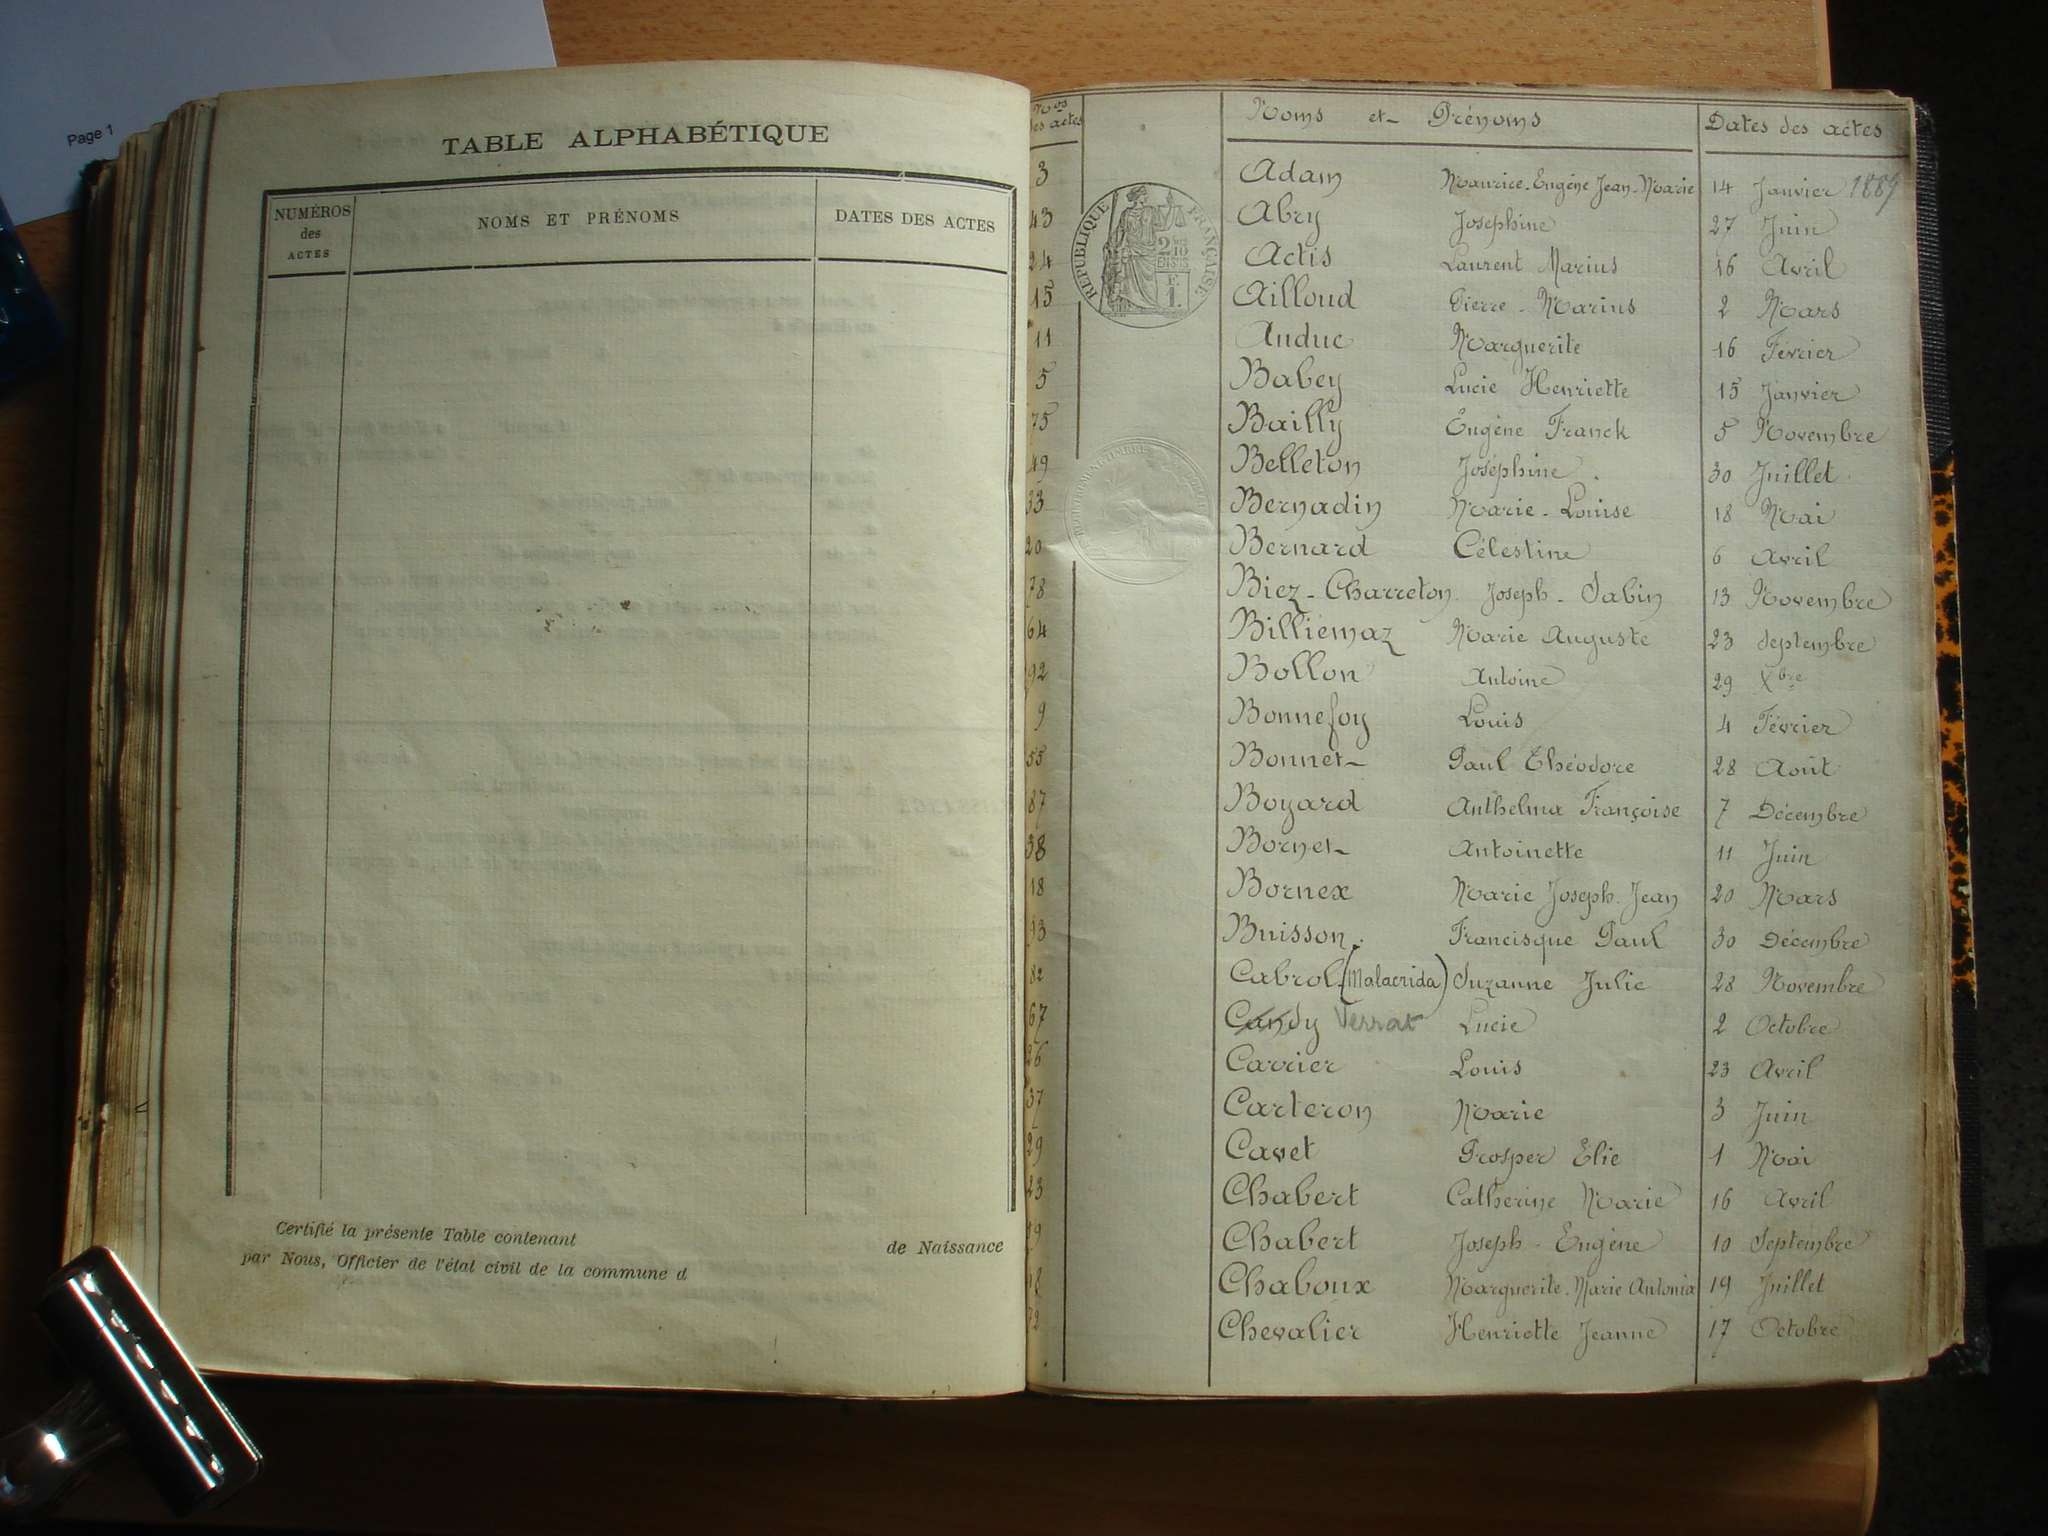 Page 1
TABLE ALPHABÉTIQUE
NUMÉROS des ACTES NOMS ET PRÉNOMS DATES DES ACTES
Certifié la présente Table contenant de Naissance
par Nous, Officier de l'état civil de la commune d
Nos des actes Noms et Prénoms Dates des actes
RÉPUBLIQUE FRANÇAISE
3 Adam Maurice-Eugène Jean-Marie 14 Janvier 1889
43 Abry Joséphine 27 Juin
24 Actis Laurent Marius 16 Avril
15 Ailloud Pierre-Marius 2 Mars
11 Auduc Marguerite 16 Février
5 Babey Lucie Henriette 15 Janvier
75 Bailly Eugène Franck 5 Novembre
49 Belleton Joséphine 30 Juillet
33 Bernadin Marie-Louise 18 Mai
20 Bernard Célestine 6 Avril
78 Biez-Charreton Joseph-Sabin 13 Novembre
64 Billiémaz Marie Auguste 23 Septembre
92 Bollon Antoine 29 Xbre
9 Bonnefoy Louis 4 Février
55 Bonnet Paul Théodore 28 Août
87 Boyard Anthelma Françoise 7 Décembre
38 Bornet Antoinette 11 Juin
18 Bornex Marie Joseph Jean 20 Mars
93 Buisson Francisque Paul 30 Décembre
82 Cabrol (Malacrida) Suzanne Julie 28 Novembre
67 Candy Verrat Lucie 2 Octobre
26 Carrier Louis 23 Avril
37 Carteron Marie 3 Juin
29 Cavet Prosper Elie 1 Mai
23 Chabert Catherine Marie 16 Avril
Chabert Joseph-Eugène 10 Septembre
Chaboux Marguerite-Marie Antonia 19 Juillet
72 Chevalier Henriette Jeanne 17 Octobre